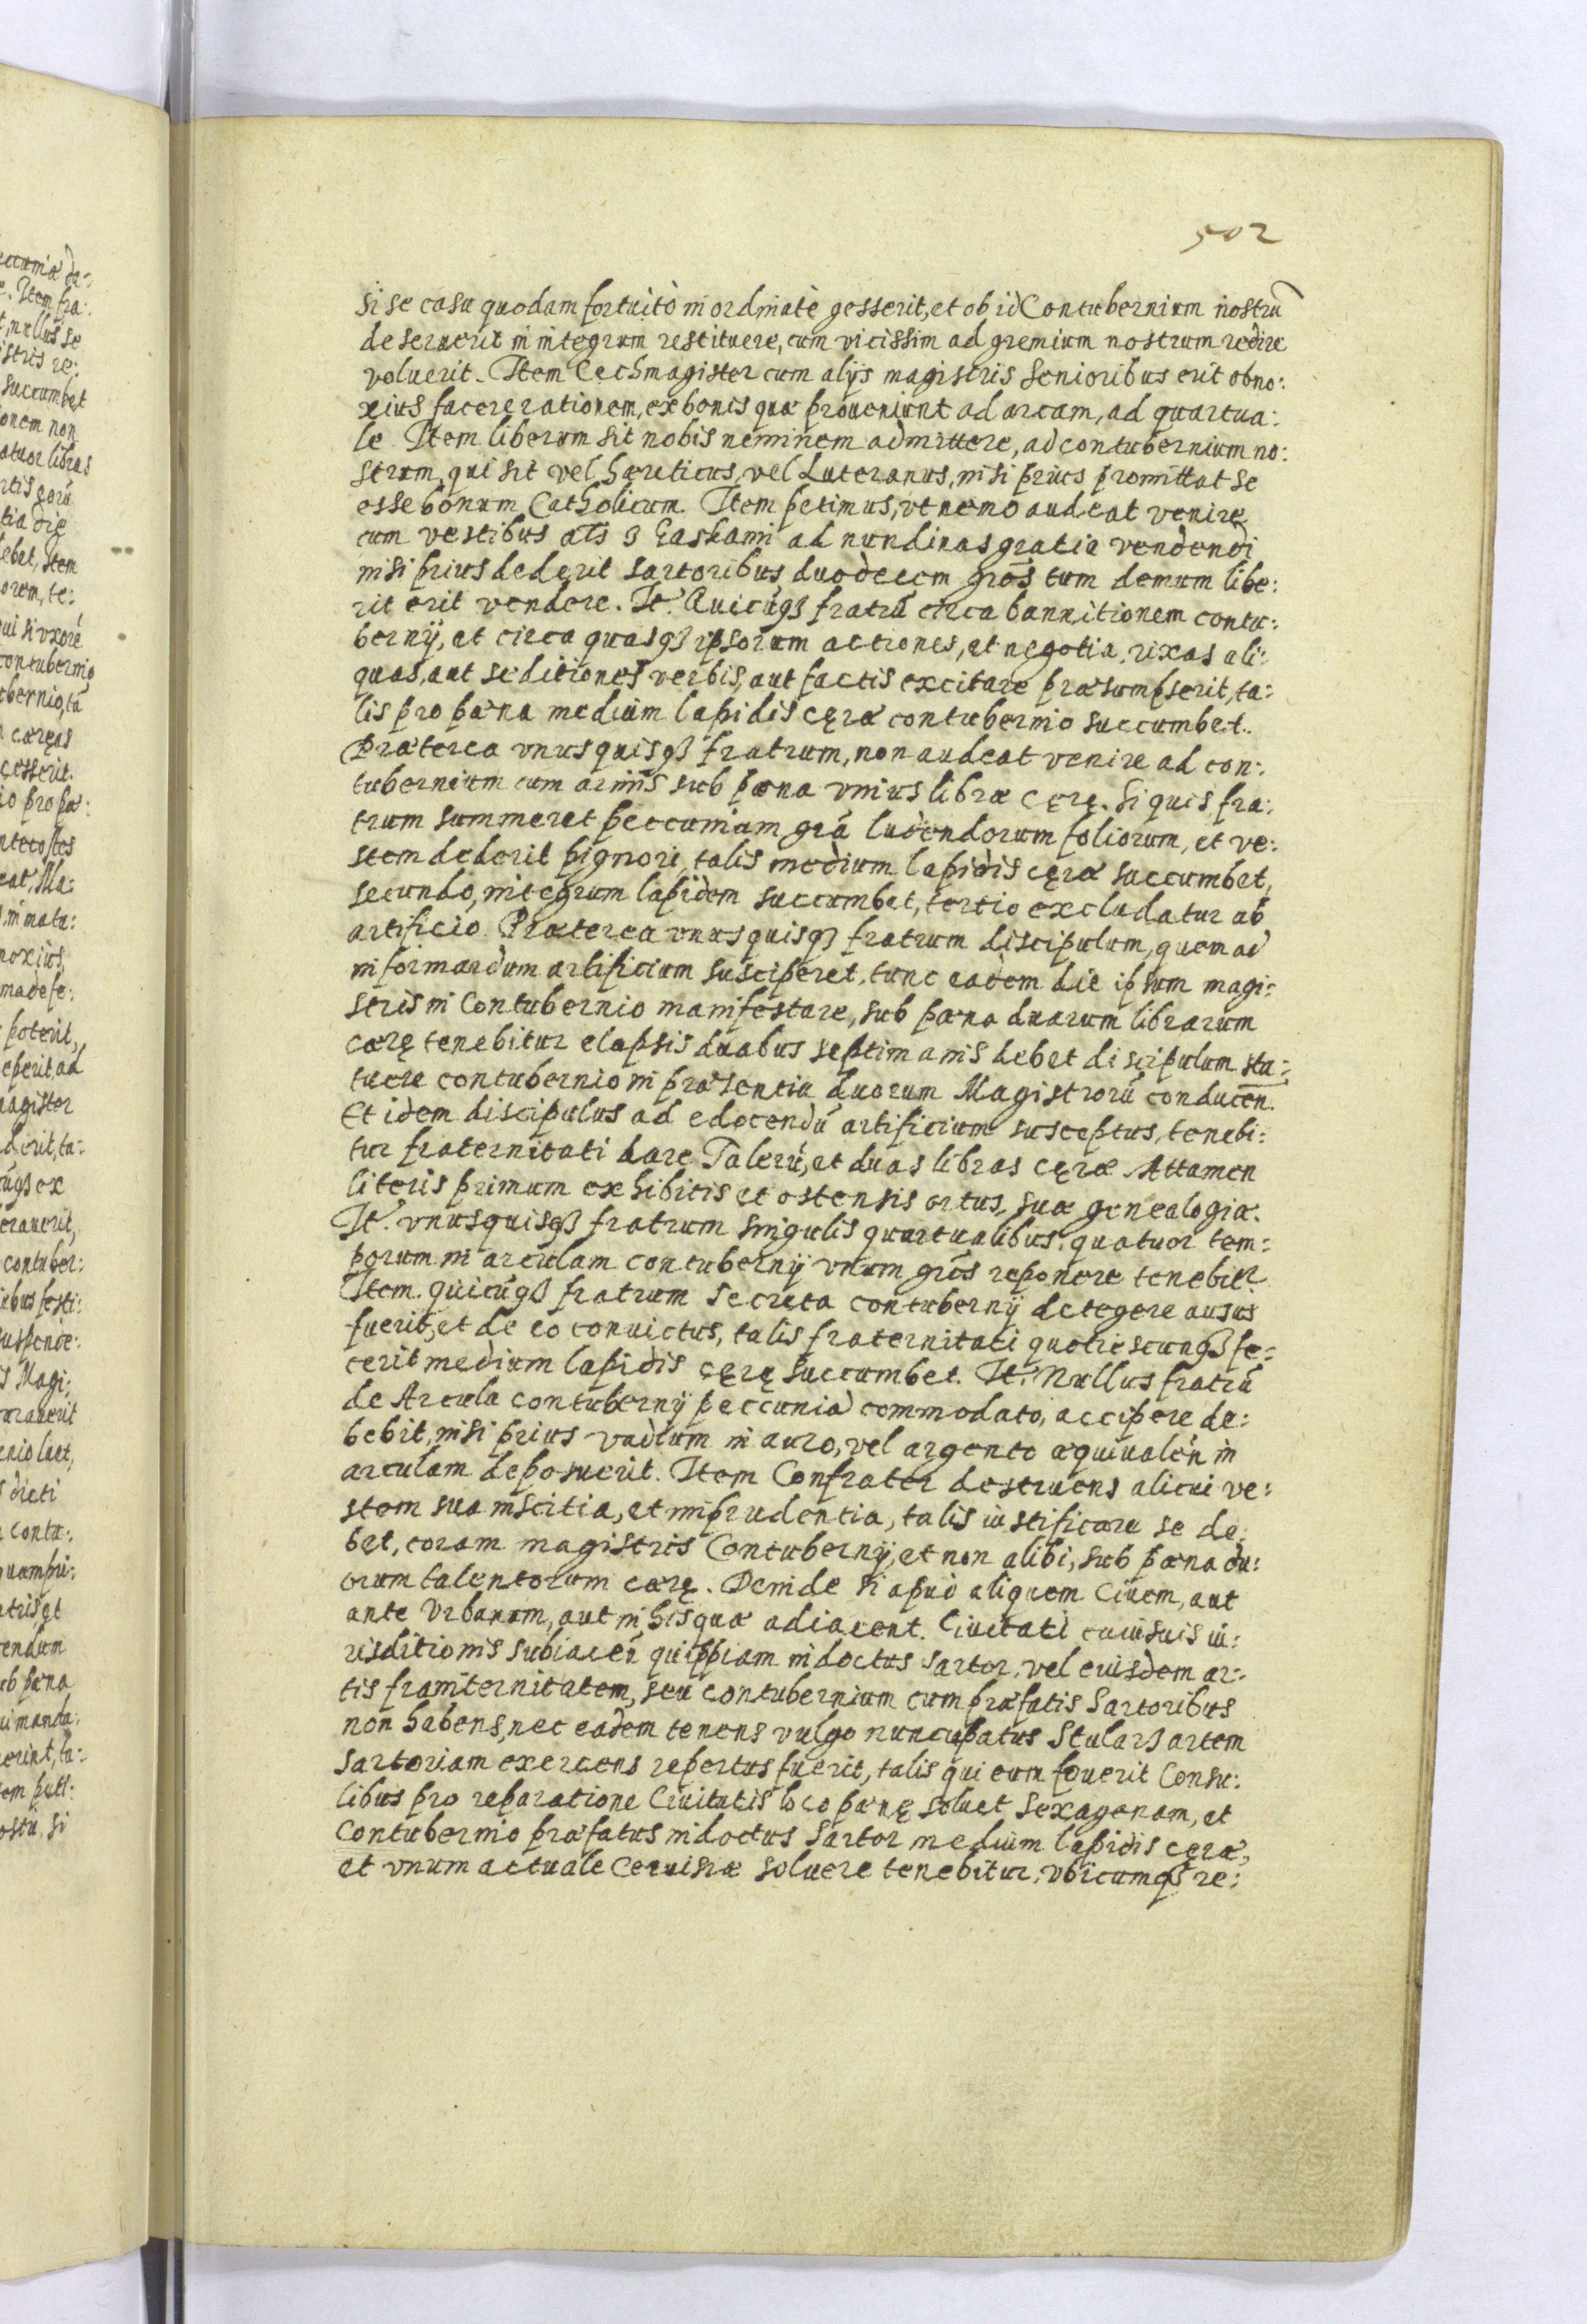 502
si se casu quodam fortuitò inordinatè gesserit, et ob id Contubernium nostrũ
deseruerit in integrum restituere, cum vicissim ad gremium nostrum redire
voluerit. Item Cechmagister cum alijs magistris Senioribus erit obno:
xius facere rationem, ex bonis quæ proueniunt ad arcam, ad quartua:
le. Item liberum sit nobis neminem admittere, ad contubernium no:
strum, qui sit vel hæreticus, vel Luteranus, nisi prius promittat se
esse bonum Catholicum. Item petimus, vt nemo audeat venire
cum vestibus als z Gaskami ad nundinas gratia vendendi
nisi prius dederit sartoribus duodecem gros tum demum libe:
rit erit vendere. It. Quicũqꝫ fratrũ circa bannitionem contu:
bernÿ, et circa quasqꝫ ipsorum actiones, et negotia, rixas ali:
quas, aut seditiones verbis, aut factis excitare præsumpserit, ta:
lis pro pæna medium lapidis cęræ contubernio succumbet.
Præterea vnusquisqꝫ fratrum, non audeat venire ad con:
tubernium cum armis sub pæna vnius libræ cęrę. Si quis fra:
trum summeret peccuniam grã ludendorum foliorum, et ve:
stem dederit pignori, talis medium lapidis cęræ succumbet,
secundo, integrum lapidem succumbet, tertio excludatur ab
artificio. Præterea vnusquisqꝫ fratrum discipulum, quem ad
informandum artificium susciperet, tunc eadem die ipsum magi:
stris in Contubernio manifestare, sub pæna duarum librarum
cærę tenebitur elapsis duabus septimanis debet discipulum sta:
tuere contubernio in præsentia duorum Magistrorũ conducen̄.
Et idem discipulus ad edocendũ artificium susceptus, tenebi:
tur fraternitati dare Talerũ, et duas libras cęræ. Attamen
literis primum exhibitis et ostensis ortus, suæ genealogiæ.
It. vnusquisqꝫ fratrum singulis quartualibus, quatuor tem:
porum in arculam contubernÿ vnum gros reponere tenebit̃.
Item. quicũqꝫ fratrum secreta contubernÿ detegere ausus
fuerit, et de eo conuictus, talis fraternitati quotiescunqꝫ fe:
cerit medium lapidis cęrę succumbet. It. Nullus fratrũ
de Arcula contubernÿ peccuniã commodato, accipere de:
bebit, nisi prius vadium in auro, vel argento æquiualen̄ in
arculam deposuerit. Item Confrater destruens alicui ve:
stem sua inscitia, et imprudentia, talis iustificare se de:
bet, coram magistris Contubernÿ, et non alibi, sub pæna du:
orum talentorum cærę. Deinde si apud aliquem Ciuem, aut
ante Vrbanum, aut in his quæ adiacent. Ciuitati cuiusuis iu:
risditionis subiacen̄ quippiam indoctus sartor, vel eiusdem ar:
tis framternitatem, seu contubernium cum præfatis Sartoribus
non habens, nec eadem tenens vulgo nuncupatus Stularz artem
sartoriam exercens repertus fuerit, talis qui eum fouerit Consu:
libus pro reparatione Ciuitatis loco pænę soluet sexagenam, et
Contubernio præfatus indoctus Sartor medium lapidis cęræ,
et vnum actuale Ceruisiæ soluere tenebitur, vbicumqꝫ re: